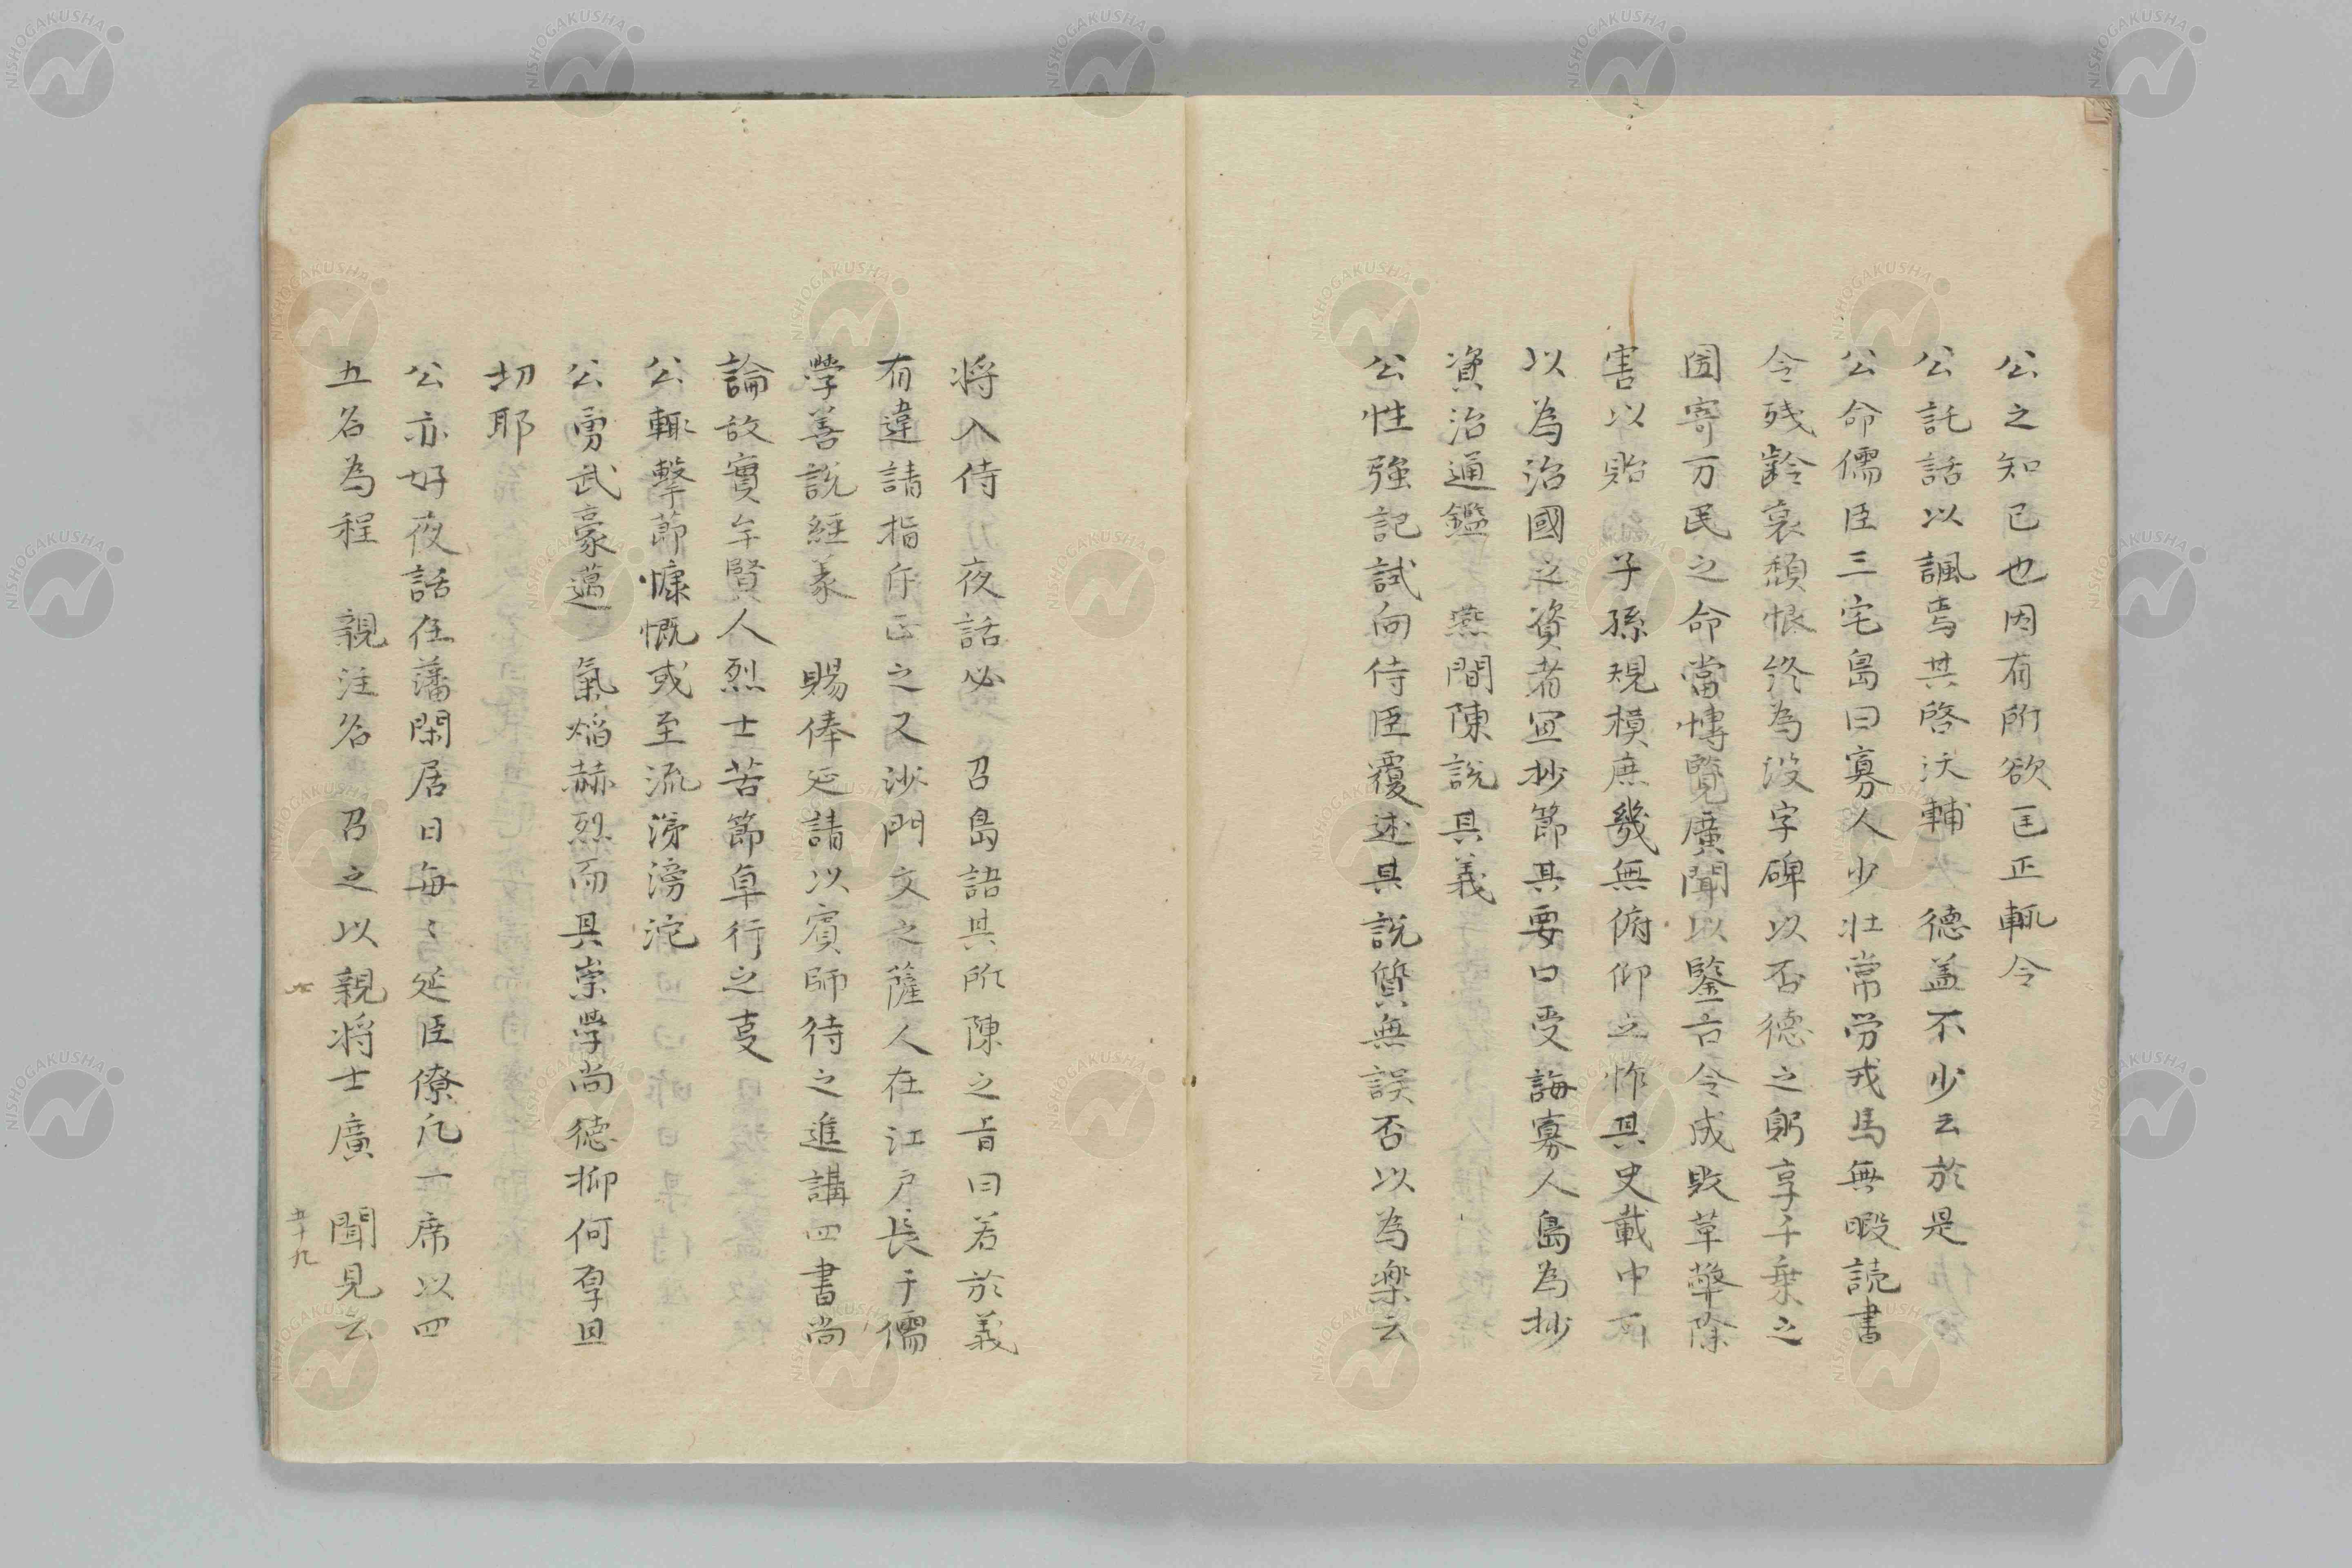 公之知已也因有所欲匡正輙令
公託話以諷焉其啓沃輔德盖不少云於是
公命儒臣三宅島曰寡人少壮常労戎馬無暇読書
今残齡衰頽恨終為没字碑以否德之躬享千乗之
國寄万民之命當博覽廣聞以鑒古今成敗革弊除
害以貽子孫規模庶幾無俯仰之怍其史載中可
以為治國之資者宜抄節其要口受誨寡人島為抄
資治通鑑 燕間陳說其義
公性強記試向侍臣覆述其説質無誤否以為楽云
将入侍夜話必 召島語其所陳之旨曰若於義
有違請指斥正之又沙門文之薩人在江戸長于儒
學善説經義 賜俸延請以賓師待之進講四書尚
論故實至賢人烈士苦節卓行之㕝
公輙擊節慷慨或至流涕滂沱
公勇武豪邁 氣焔赫烈而其崇學尚德抑何厚且
切耶
公亦好夜話在藩閑居日每々延臣僚凡一席以四
五名為程 親注名 召之以親将士廣 聞見云
五十九
NISHOGAKUSHA